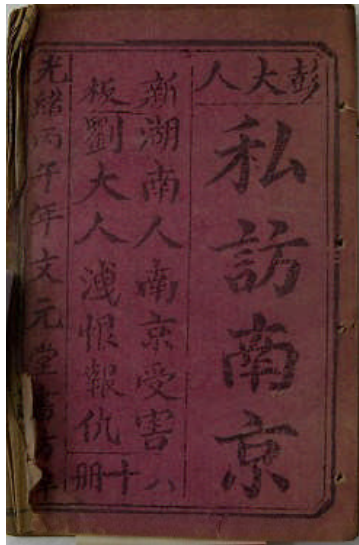 彭大人
私訪南京
新板
湖南人南京受害
劉大人洩恨報仇
八十册
光緒丙午年文元堂書